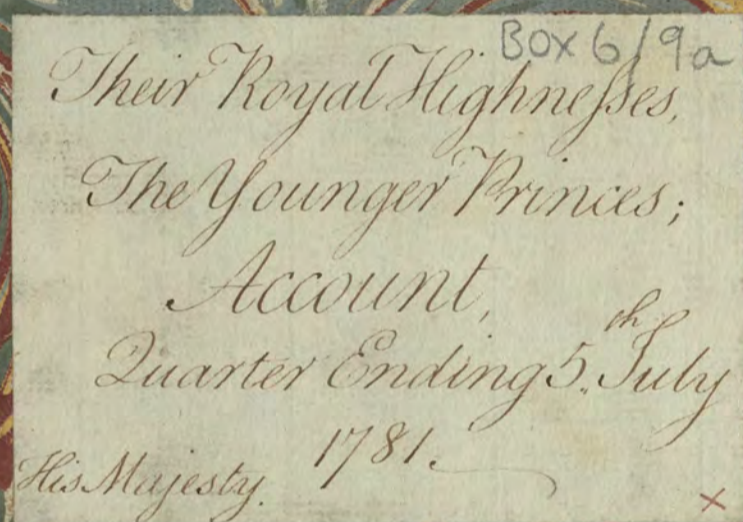 Box 6/9a
Their Royal Highneſses,
The Younger Princes;
Account,
Quarter Ending 5.th July
1781.
His Majesty.
x